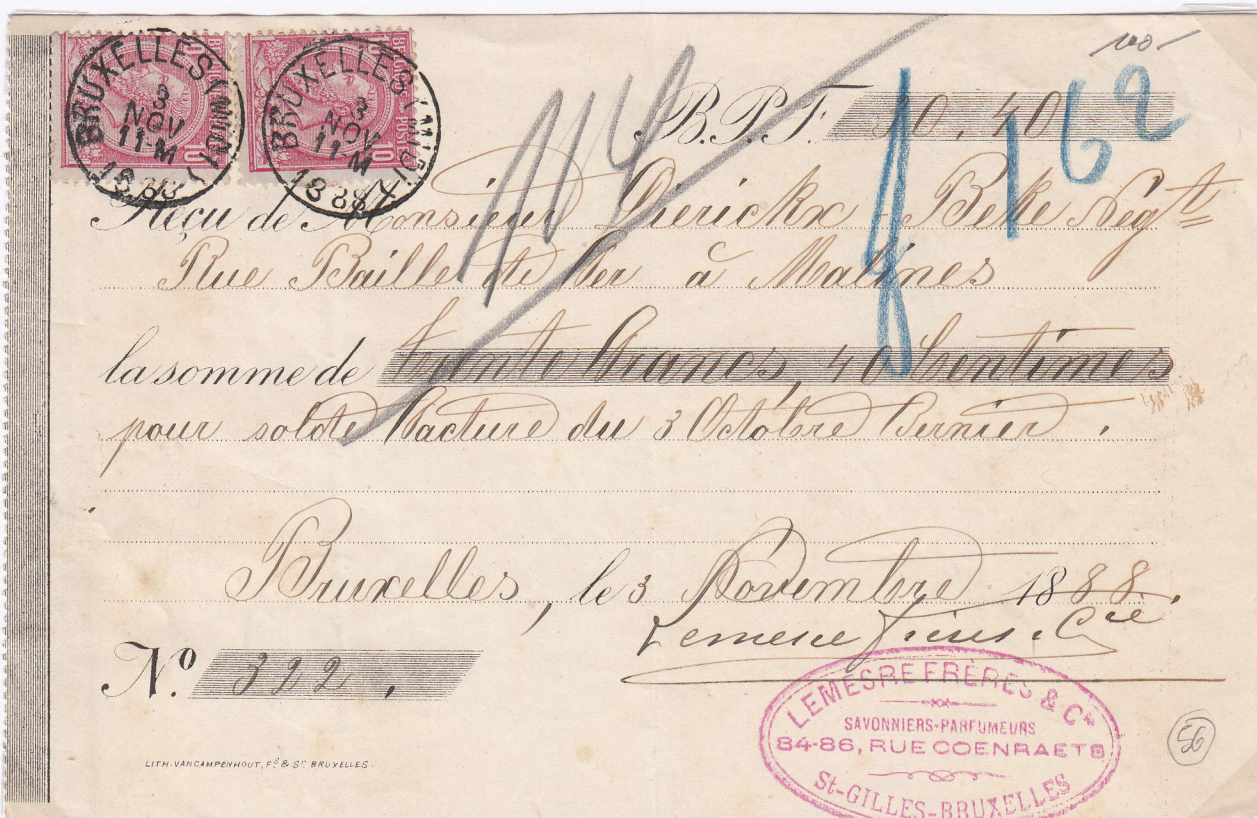 BRUXELLES (MIDI)
3
NOV
11-M
1888
10 BELGIQUE POSTES 10
BRUXELLES (MIDI)
3
NOV
11-M
1888
100
114
8
162
B.P.F. 30,40
Reçu de Monsieur Dierickx-Beke Négt
Rue Baille de fer à Malines
la somme de trente francs, 40 Centimes
pour solde facture du 3 Octobre dernier.
Bruxelles, le 3 Novembre 1888.
Lemesre frères & Cie
No. 322.
LEMESRE FRÈRES & Cie
SAVONNIERS-PARFUMEURS
84-86, RUE COENRAETS
St-GILLES-BRUXELLES
56
LITH. VANCAMPENHOUT, Fs & Sr BRUXELLES.